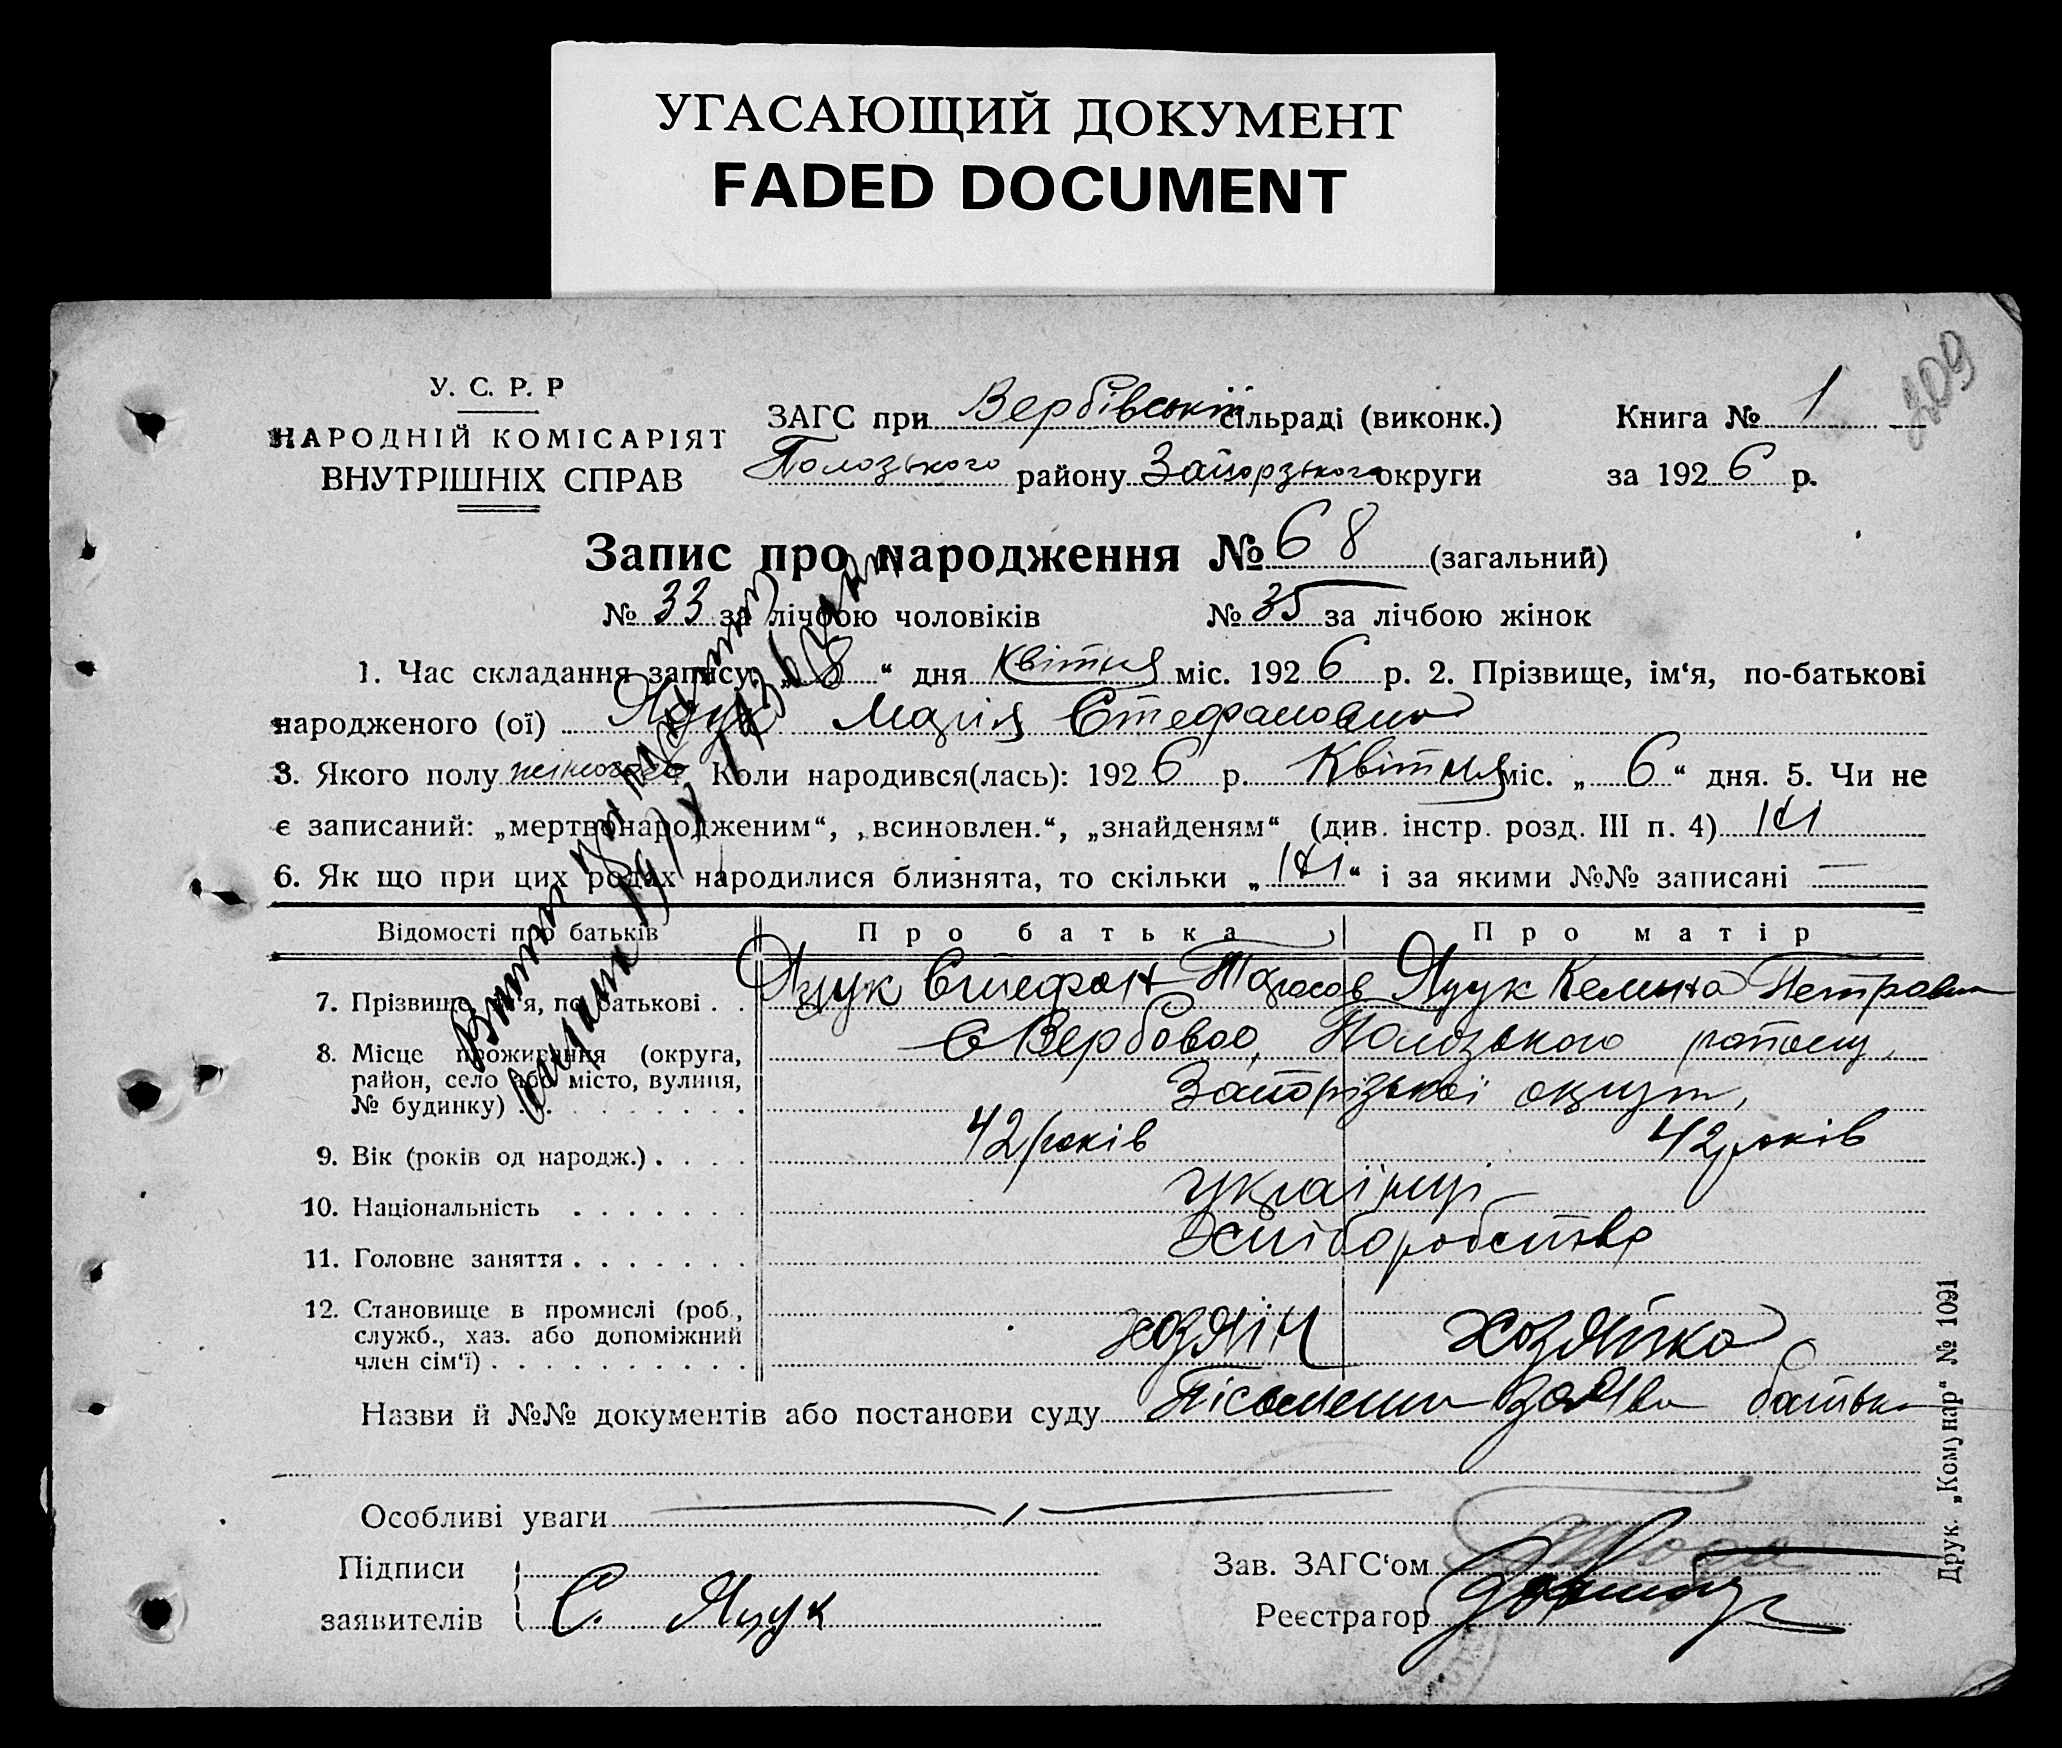 УГАСАЮЩИЙ ДОКУМЕНТ
FADED DOCUMENT
409
У. С. Р. Р
НАРОДНІЙ КОМІСАРІЯТ
ВНУТРІШНІХ СПРАВ
ЗАГС при Вербівській сільраді (виконк.)
Полозького району Запорзького округи
Книга № 1
за 1926 р.
Запис про народження № 68 (загальний)
№ 33 за лічбою чоловіків № 35 за лічбою жінок
1. Час складання запису: „8“ дня Квітня міс. 1926 р. 2. Прізвище, ім‘я, по-батькові
народженого (ої) Яцук Марія Стефановна
3. Якого полу жіночого 4. Коли народився(лась): 1926 р. Квітня міс. „6“ дня. 5. Чи не
є записаний: „мертвонародженим“, „всиновлен.“, „знайденям“ (див. інстр. розд. III п. 4) ні
6. Як що при цих родах народилися близнята, то скільки „ні“ і за якими №№ записані —
Відомості про батьків Про батька Про матір
7. Прізвище, ім‘я, по батькові . . Яцук Стефан Тарасов Яцук Келина Петровна
8. Місце проживання (округа, с Вербове, Полозького району,
район, село або місто, вулиця, Запорізької округи,
№ будинку) . . .
9. Вік (років од народж.) . . . . 42 років 42 років
10. Національність . . . . . . . українці
11. Головне заняття . . . . . . . Хліборобство
12. Становище в промислі (роб.,
служб., хаз. або допоміжний хозяїн хозяйка
член сім‘ї) . . . . . . . . . . .
Назви й №№ документів або постанови суду Пісьменна заява батька
Особливі уваги
Підписи
заявителів С. Яцук
Зав. ЗАГС‘ом
Реєстратор
Друк. „Комунар“ № 1091